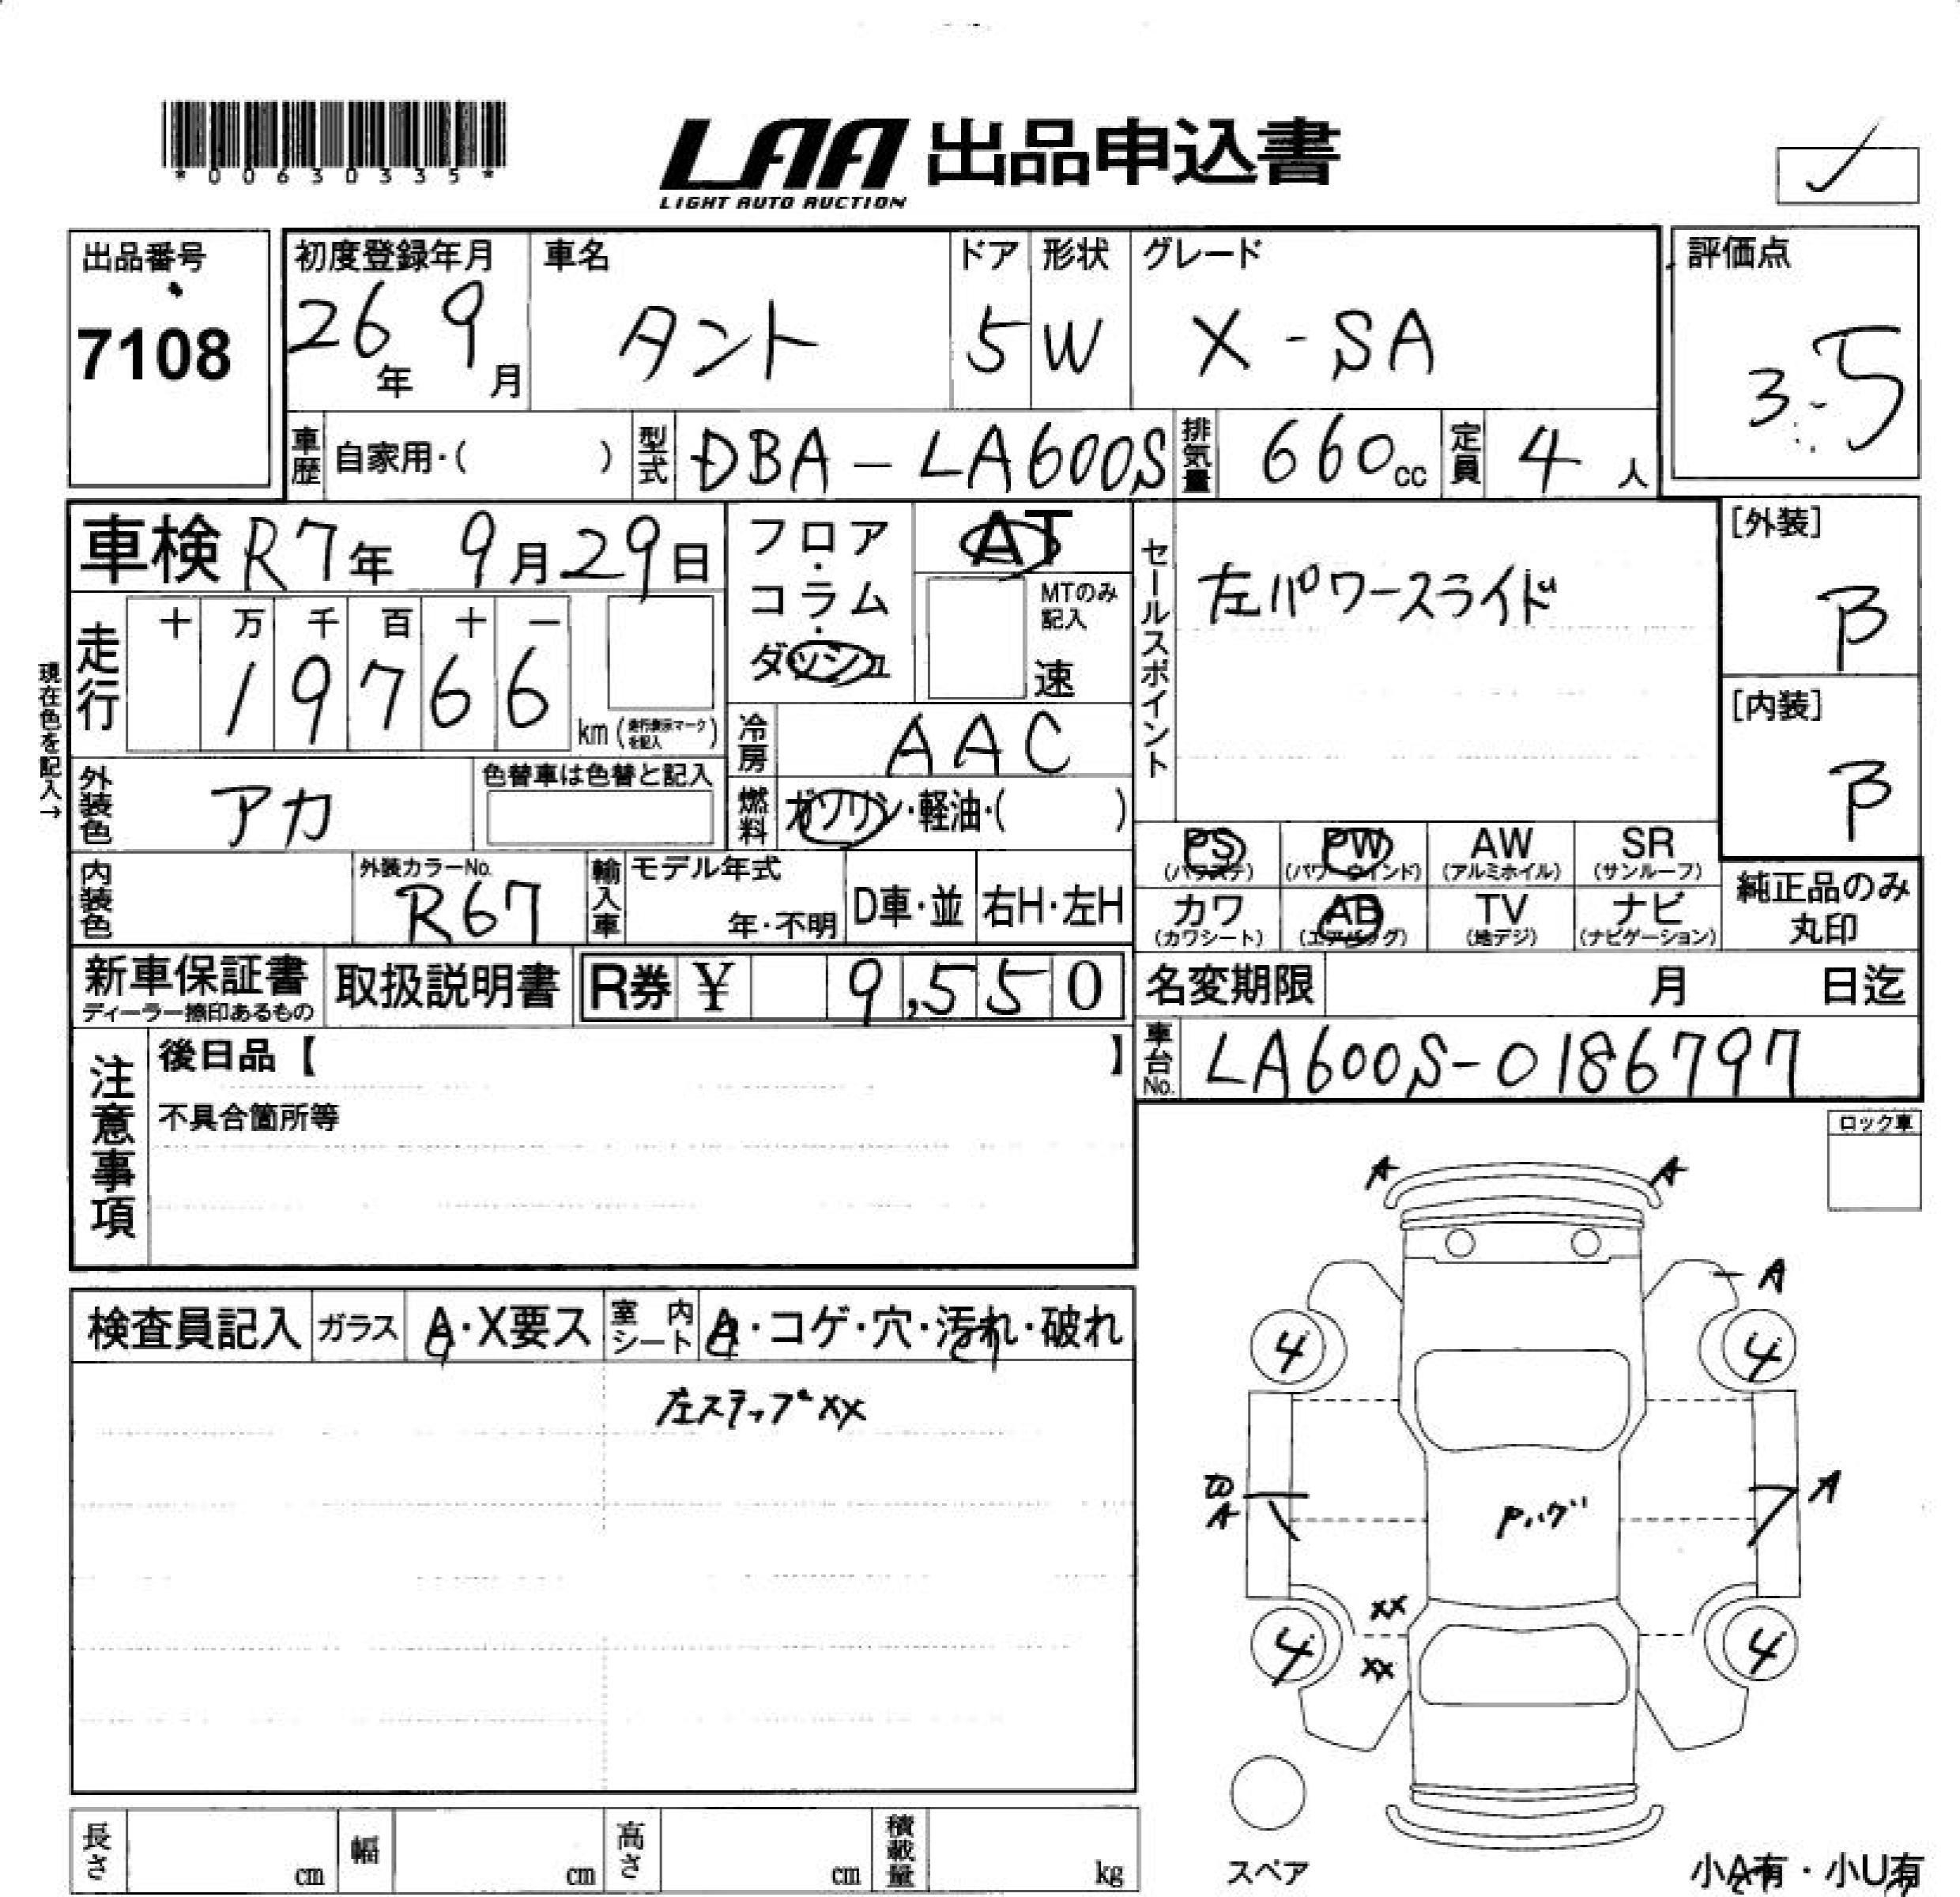 *00630335*
LAA 出品申込書
LIGHT AUTO AUCTION
出品番号
7108
初度登録年月
26年 9月
車名
タント
ドア
5
形状
W
グレード
X-SA
評価点
3.5
車歴 自家用・( )
型式 DBA-LA600S
排気量 660cc
定員 4人
車検 R7年 9月29日
フロア・コラム・ダッシュ
AT
MTのみ記入
速
セールスポイント
左パワースライド
[外装]
B
[内装]
B
現在色を記入→
走行
十 万 千 百 十 一
1 9 7 6 6
km (走行表示マークを記入)
冷房 AAC
外装色 アカ
色替車は色替と記入
燃料 ガソリン・軽油・( )
PS (パワステ)
PW (パワーウインド)
AW (アルミホイル)
SR (サンルーフ)
カワ (カワシート)
AB (エアバッグ)
TV (地デジ)
ナビ (ナビゲーション)
純正品のみ丸印
内装色
外装カラーNo.
R67
輸入車
モデル年式
年・不明
D車・並
右H・左H
新車保証書
ディーラー捺印あるもの
取扱説明書
R券 ¥ 9,550
名変期限 月 日迄
車台No. LA600S-0186797
注意事項
後日品【 】
不具合箇所等
ロック車
検査員記入
ガラス A・X要ス
室内シート A・コゲ・穴・汚れ・破れ
左ステップXX
A
A
A
4
4
A
A
Pハゲ
XX
XX
4
4
スペア
小A有・小U有
長さ cm
幅 cm
高さ cm
積載量 kg